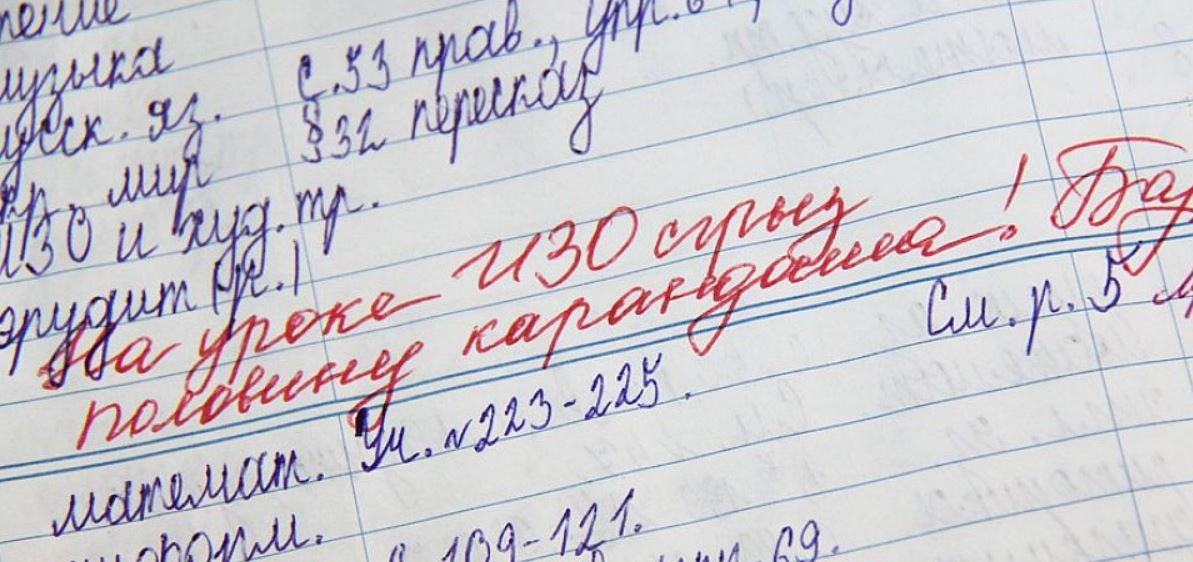 музыка
русск. яз. с.53 прав., упр.
окр. мир §32 пересказ
ИЗО и худ. тр.
эрудит р. 1
На уроке ИЗО сгрыз
половину карандаша!
См. р. 5
математ. Уч. №223-225.
информ. с. 109-121.
69.